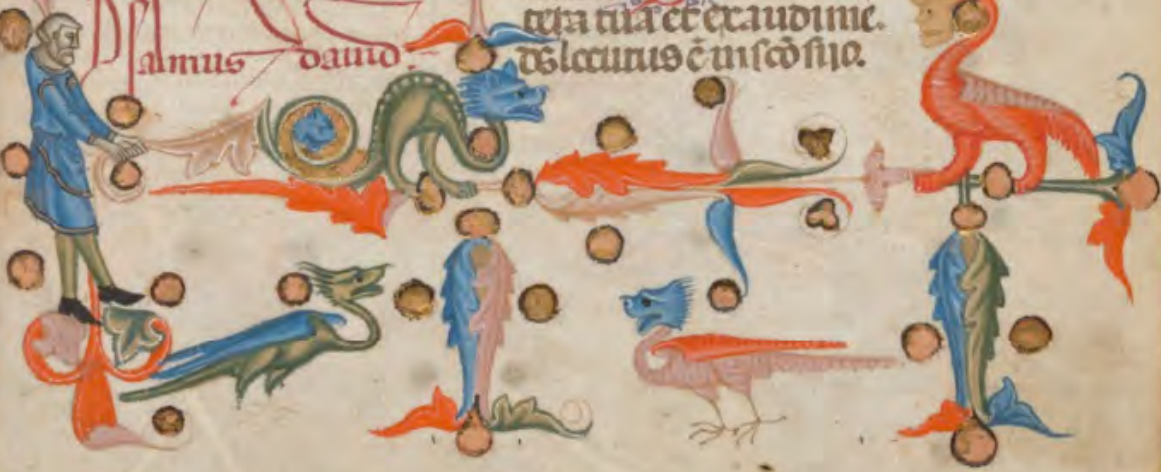 Psalmus dauid.
tera tua et exaudi me.
Ds locutus ē in scō suo.